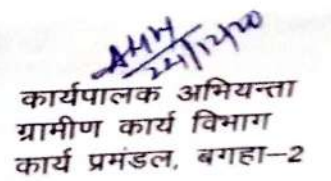 24/12/20
कार्यपालक अभियन्ता
ग्रामीण कार्य विभाग
कार्य प्रमंडल, बगहा–2